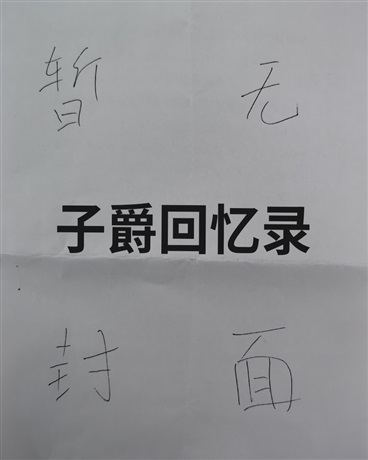 暂 无
子爵回忆录
封 面